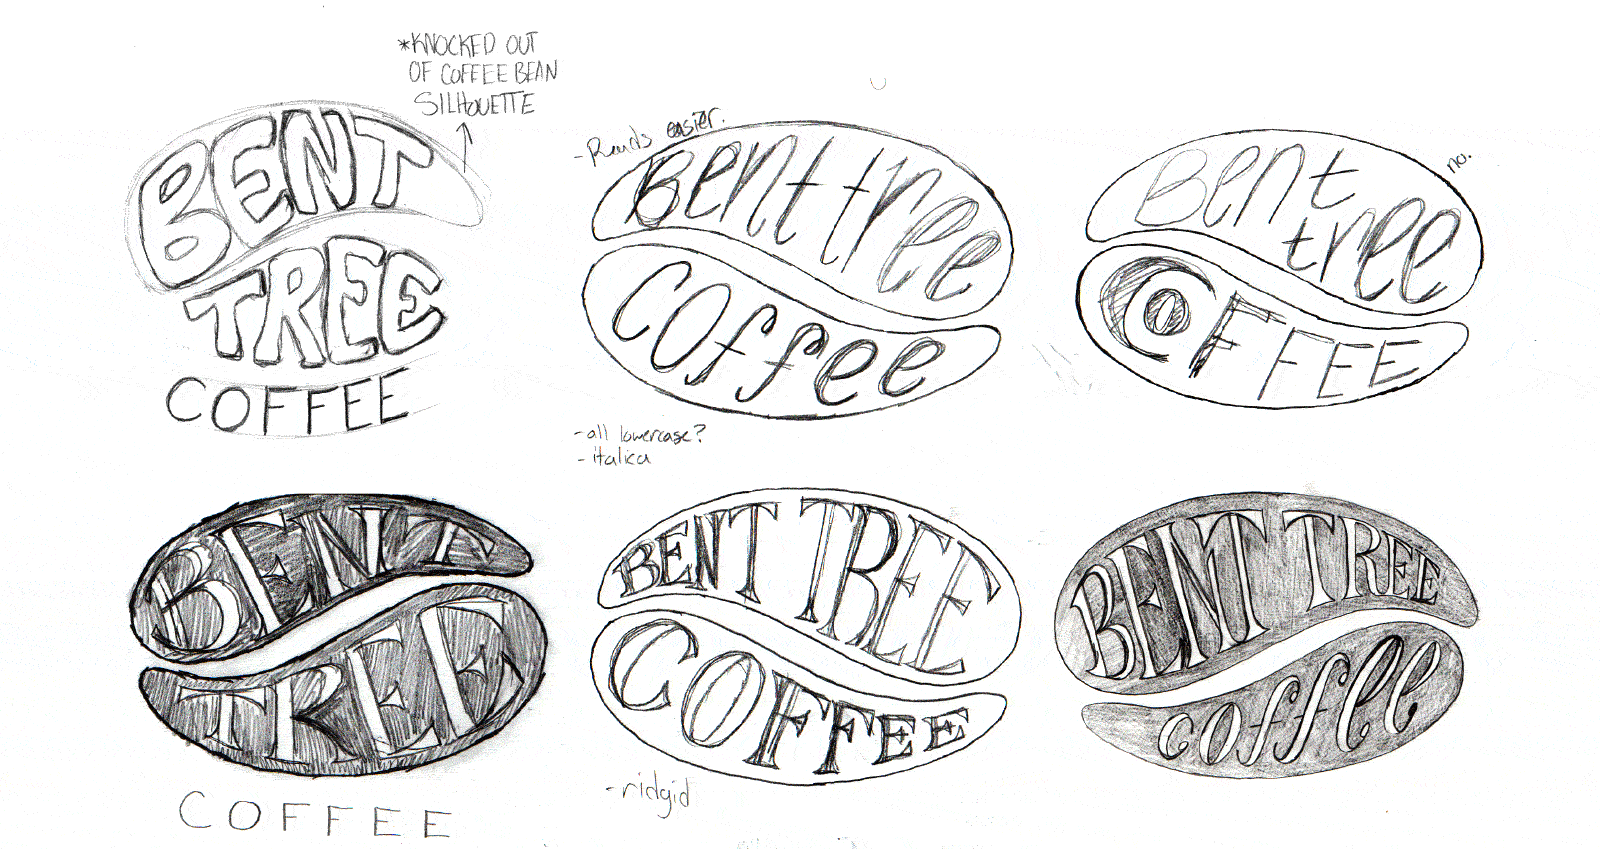 *KNOCKED OUT
OF COFFEE BEAN
SILHOUETTE
BENT
TREE
COFFEE
-Reads easier.
Bent tree
coffee
-all lowercase?
-italica
no.
Bent
tree
COFFEE
BENT
TREE
COFFEE
BENT TREE
COFFEE
-ridgid
BENT TREE
coffee